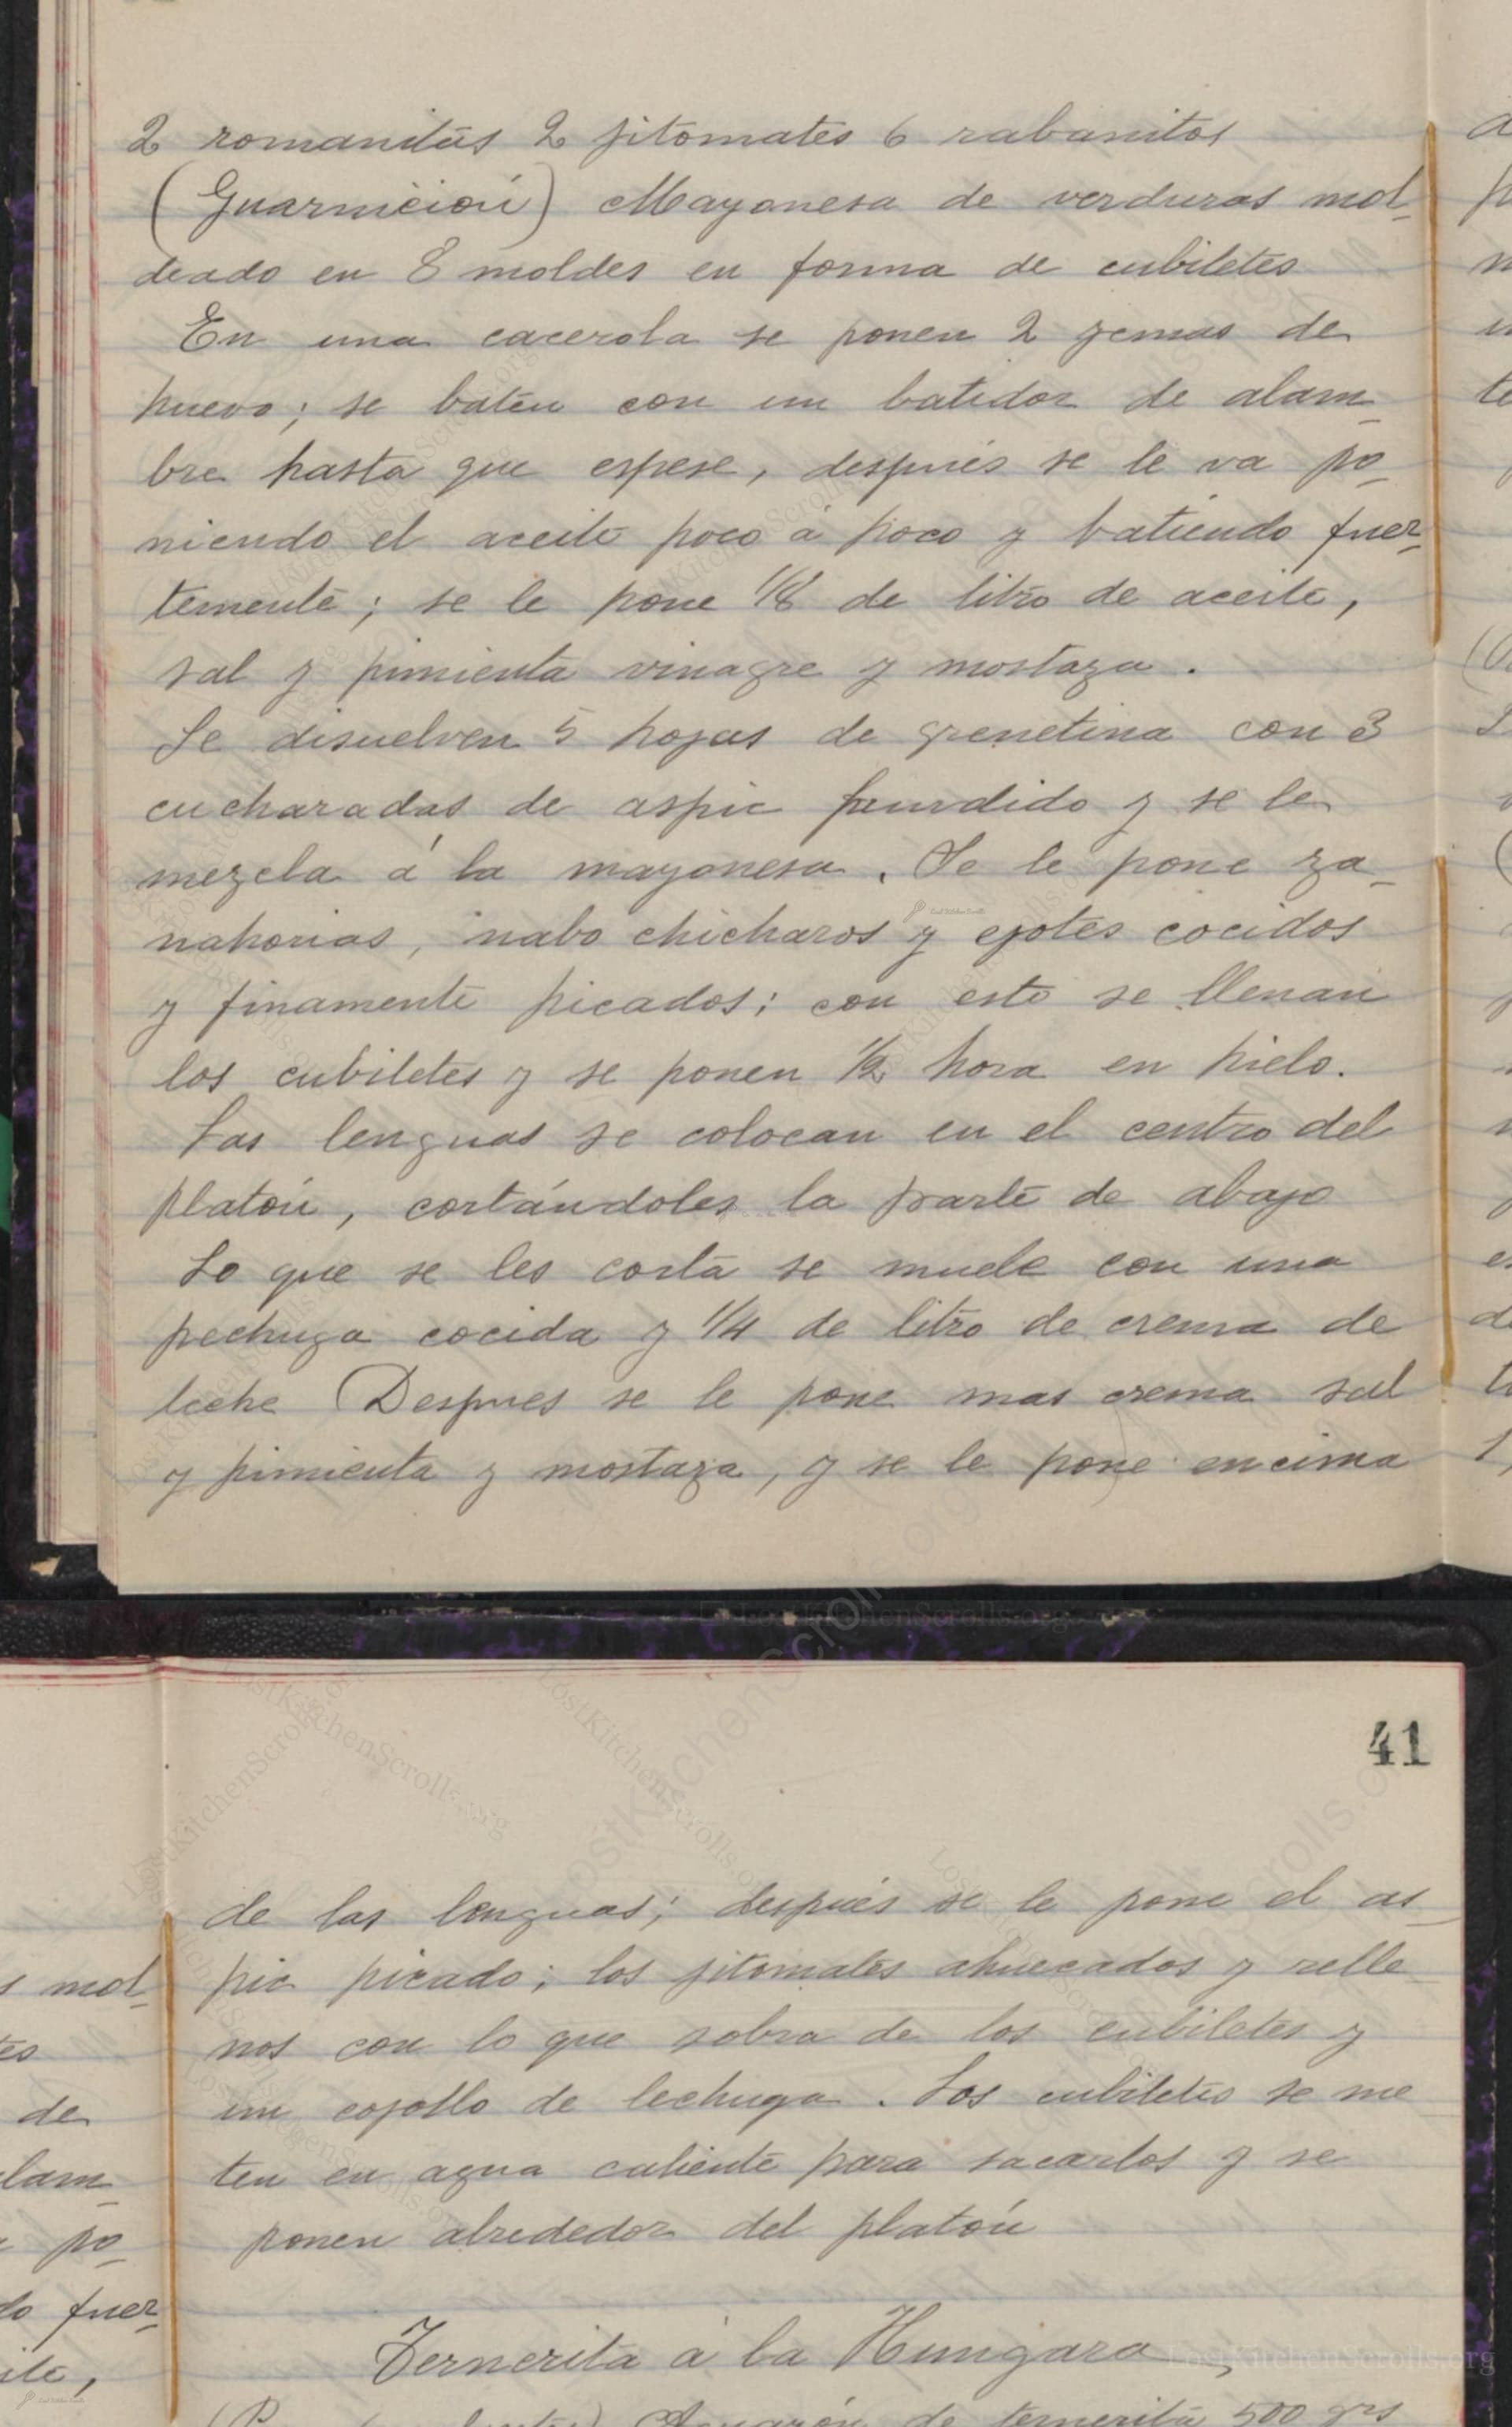 2 romanitas 2 jitomates 6 rabanitos
(Guarnición) Mayonesa de verduras mol-
deado en 8 moldes en forma de cubiletes
En una cacerola se ponen 2 yemas de
huevo; se baten con un batidor de alam-
bre hasta que espese, después se le va po-
niendo el aceite poco á poco y batiendo fuer-
temente; se le pone 1/8 de litro de aceite,
sal y pimienta vinagre y mostaza.
Se disuelven 5 hojas de grenetina con 3
cucharadas de aspic fundido y se le
mezcla á la mayonesa. Se le pone za-
nahorias, nabo chicharos y ejotes cocidos
y finamente picados; con esto se llenan
los cubiletes y se ponen 1/2 hora en hielo.
Las lenguas se colocan en el centro del
platón, cortándoles la parte de abajo
Lo que se les corta se muele con una
pechuga cocida y 1/4 de litro de crema de
leche Despues se le pone mas crema sal
y pimienta y mostaza, y se le pone encima
41
de las lenguas; después se le pone el as-
pic picado; los jitomates ahuecados y relle-
nos con lo que sobra de los cubiletes y
un cojollo de lechuga. Los cubiletes se me
ten en agua caliente para sacarlos y se
ponen alrededor del platón
Ternerita á la Hungara
de ternerita 500 grs
LostKitchenScrolls.org